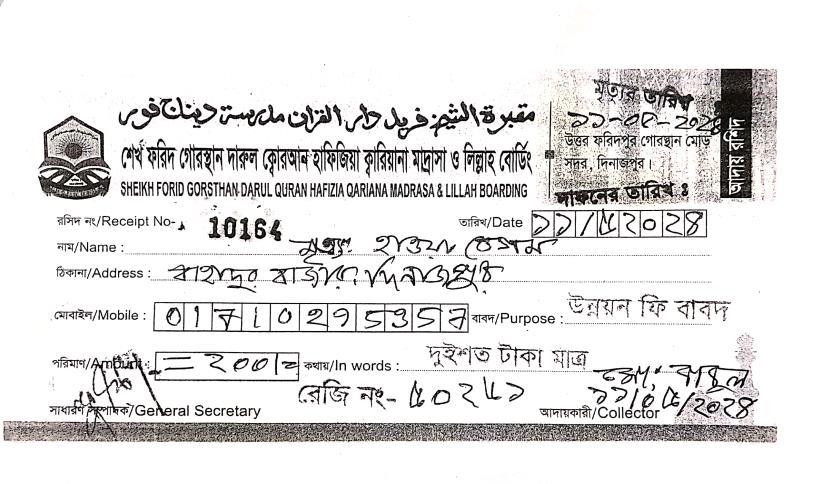 مقبرة الشيخ فريد دار القران مدرسة ديناج فور
শেখ ফরিদ গোরস্থান দারুল ক্বোরআন হাফিজিয়া ক্বারিয়ানা মাদ্রাসা ও লিল্লাহ বোর্ডিং
SHEIKH FORID GORSTHAN DARUL QURAN HAFIZIA QARIANA MADRASA & LILLAH BOARDING
মৃত্যুর তারিখ
উত্তর ফরিদপুর গোরস্থান মোড়
সদর, দিনাজপুর।
দাফনের তারিখ :
আদায় রশিদ
রসিদ নং/Receipt No- 10164 তারিখ/Date
নাম/Name : মৃত্যু হাওয়া বেগম
ঠিকানা/Address : বাহাদুর বাজার, দিনাজপুর
মোবাইল/Mobile : বাবদ/Purpose : উন্নয়ন ফি বাবদ
পরিমাণ/Amount : = ২০০/= কথায়/In words : দুইশত টাকা মাত্র
রেজি নং- ৫০২৫১ মো: বাবুল
সাধারণ সম্পাদক/General Secretary আদায়কারী/Collector